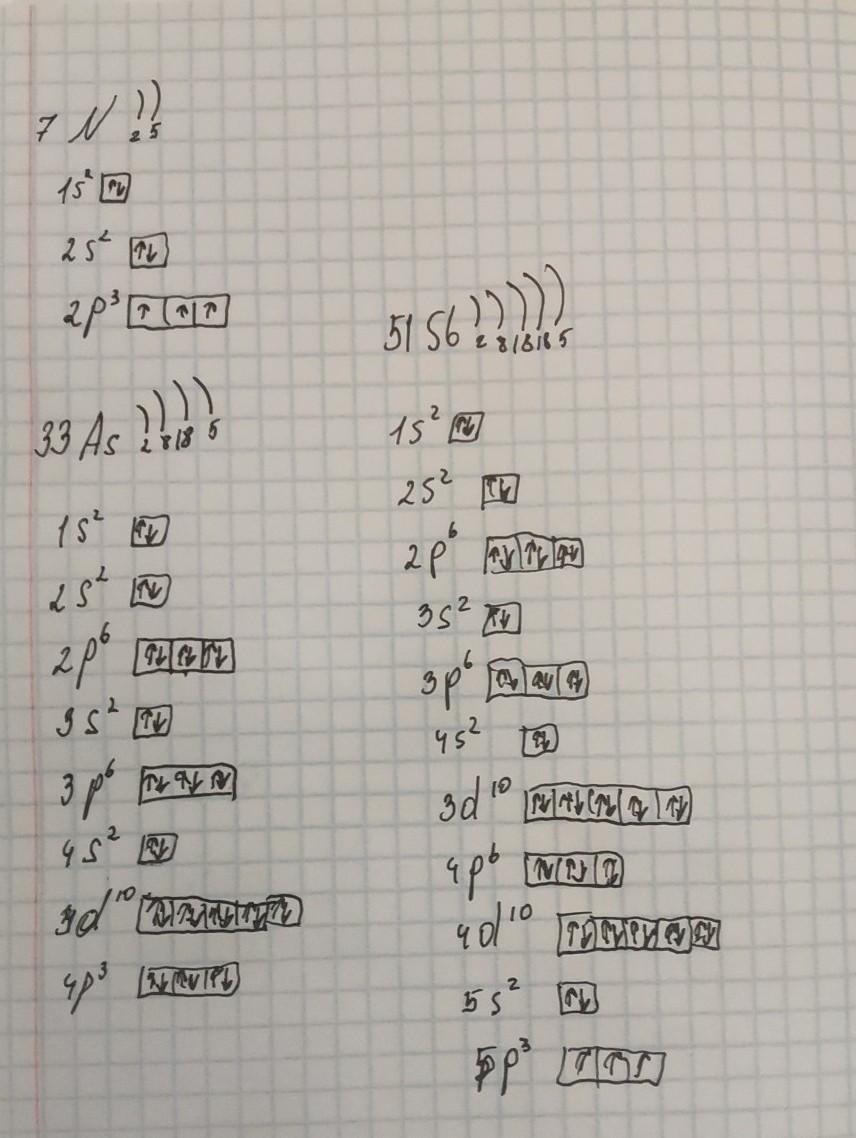 7 N ))
2 5
1s² [↑↓]
2s² [↑↓]
2p³ [↑][↑][↑]
33 As ))))
2 8 18 5
1s² [↑↓]
2s² [↑↓]
2p⁶ [↑↓][↑↓][↑↓]
3s² [↑↓]
3p⁶ [↑↓][↑↓][↑↓]
4s² [↑↓]
3d¹⁰ [↑↓][↑↓][↑↓][↑↓][↑↓]
4p³ [↑↓][↑↓][↑↓]
51 Sb )))))
2 8 18 18 5
1s² [↑↓]
2s² [↑↓]
2p⁶ [↑↓][↑↓][↑↓]
3s² [↑↓]
3p⁶ [↑↓][↑↓][↑↓]
4s² [↑↓]
3d¹⁰ [↑↓][↑↓][↑↓][↑↓][↑↓]
4p⁶ [↑↓][↑↓][↑↓]
4d¹⁰ [↑↓][↑↓][↑↓][↑↓][↑↓]
5s² [↑↓]
5p³ [↑][↑][↑]